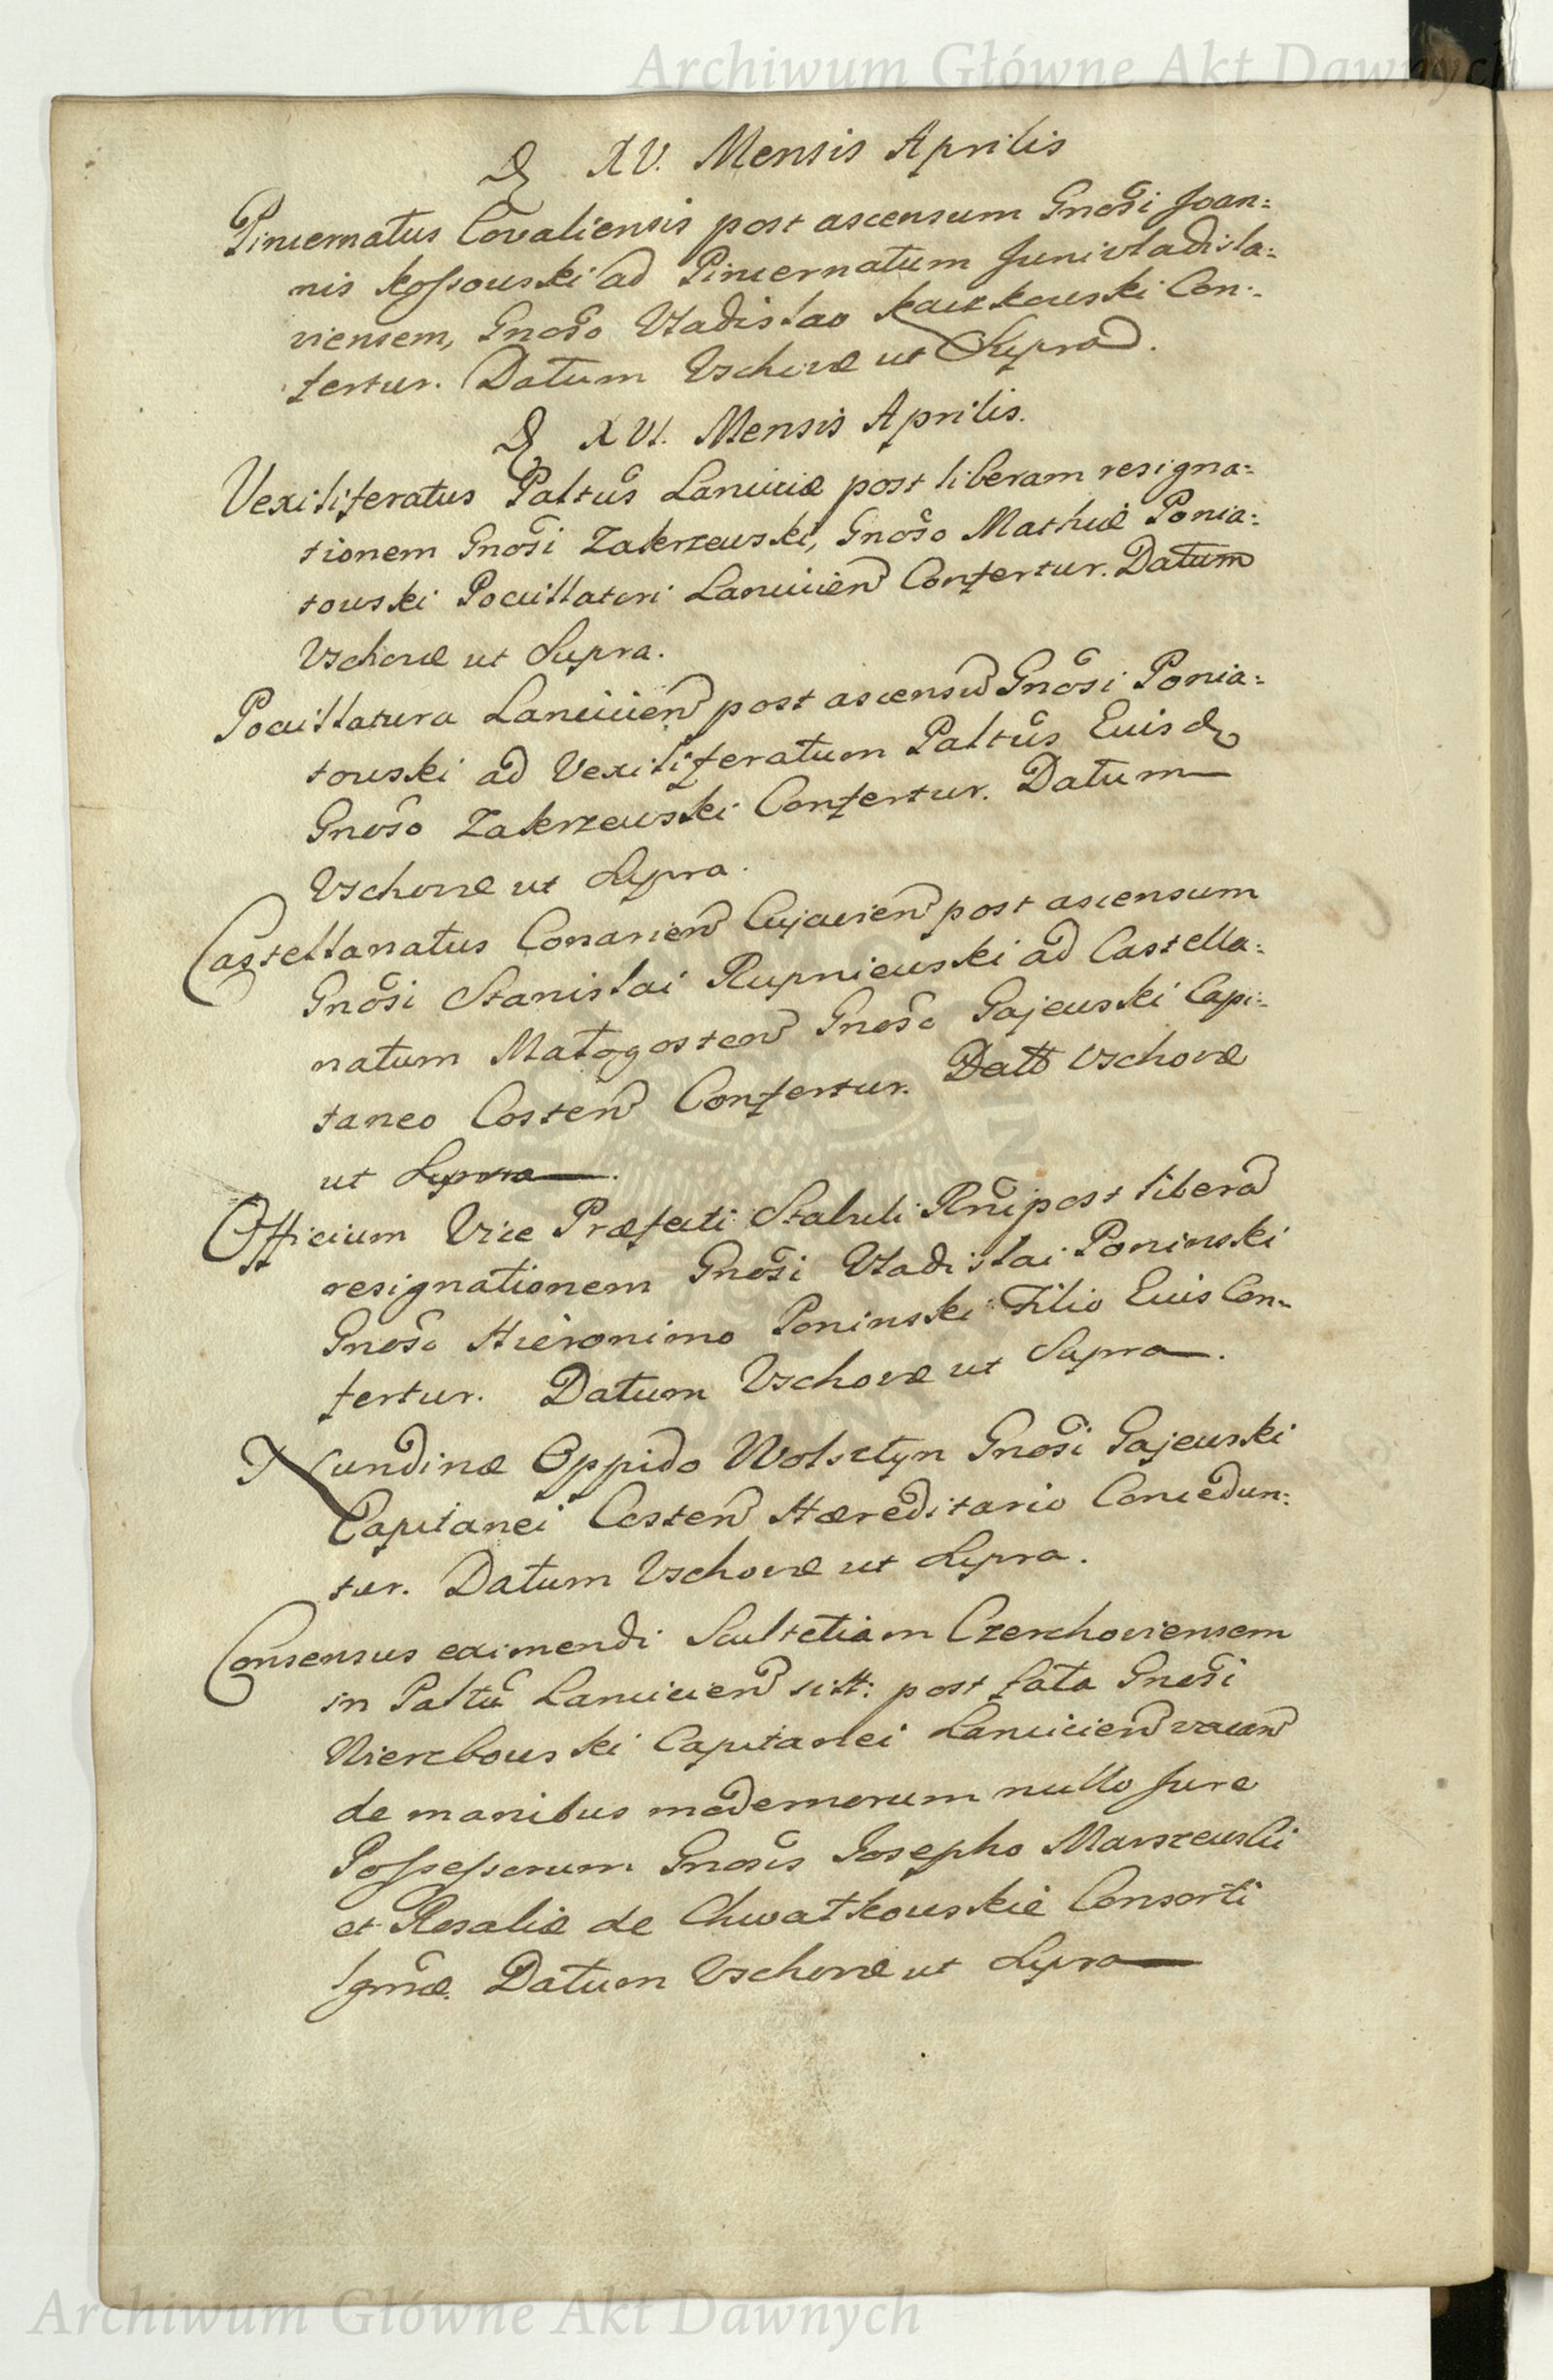 Archiwum Główne Akt Dawnych
D. XV. Mensis Aprilis
Pincernatus Covaliensis post ascensum Gnosi Joan:
nis Kossowski ad Pincernatum Junivladisla:
viensem, Gnoso Vladislao Kaczkowski Con:
fertur. Datum Vschovæ ut Supra.
D. XVI. Mensis Aprilis.
Vexiliferatus Paltus Lanciciæ post liberam resigna:
tionem Gnosi Zakrzewski, Gnoso Mathiæ Ponia:
towski Pocillatori Lancicien Confertur. Datum
Vschovæ ut Supra.
Pocillatura Lancicien post ascensũ Gnosi Ponia:
towski ad Vexiliferatum Paltus Euisd
Gnoso Zakrzewski Confertur. Datum
Vschovæ ut Supra.
Castellanatus Conarien Cujavien post ascensum
Gnosi Stanislai Rupniewski ad Castella:
natum Małogosten Gnoso Gajewski Capi:
taneo Costen Confertur. Datt Vschovæ
ut Supra.
Officium Vice Præfecti Stabuli Rni post liberã
resignationem Gnosi Vladislai Poninski
Gnoso Hieronimo Poninski Filio Euis Con:
fertur. Datum Vschovæ ut Supra.
Nundinæ Oppido Wolsztyn Gnosi Gajewski
Capitanei Costen Hæreditario Concedun:
tur. Datum Vschovæ ut Supra.
Consensus eximendi Scultetiam Czerchoviensem
in Paltu Lancicien sitt: post fata Gnosi
Wierzbowski Capitanei Lancicien vacan
de manibus modernorum nullo Jure
Possessorum Gnosis Josepho Marszewski
et Rosaliæ de Chwatkowskie Consorti
Igmæ. Datum Vschovæ ut Supra
Archiwum Główne Akt Dawnych